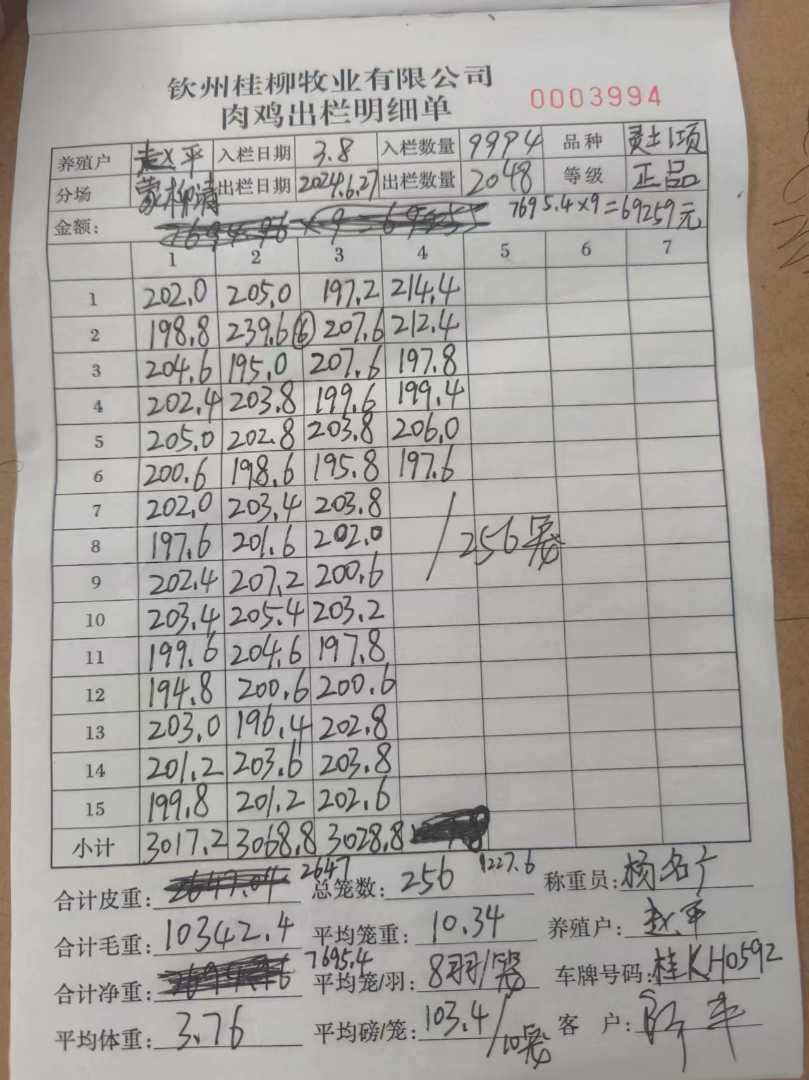 钦州桂柳牧业有限公司
肉鸡出栏明细单 0003994
养殖户 赵平 入栏日期 3.8 入栏数量 9994 品种 灵土1项
分场 蒙柳清 出栏日期 2024.6.27 出栏数量 2048 等级 正品
金额: 7695.4×9=69259元
1 2 3 4 5 6 7
1 202.0 205.0 197.2 214.4
2 198.8 239.6 ⑥ 207.6 212.4
3 204.6 195.0 207.6 197.8
4 202.4 203.8 199.6 199.4
5 205.0 202.8 203.8 206.0
6 200.6 198.6 195.8 197.6
7 202.0 203.4 203.8
8 197.6 201.6 202.0 /256笼
9 202.4 207.2 200.6
10 203.4 205.4 203.2
11 199.6 204.6 197.8
12 194.8 200.6 200.6
13 203.0 196.4 202.8
14 201.2 203.6 203.8
15 199.8 201.2 202.6
小计 3017.2 3068.8 3028.8
合计皮重: 2647 总笼数: 256 1227.6 称重员: 杨名广
合计毛重: 10342.4 平均笼重: 10.34 养殖户: 赵平
合计净重: 7695.4 平均笼/羽: 8羽/笼 车牌号码: 桂KH0592
平均体重: 3.76 平均磅/笼: 103.4/10笼 客户: